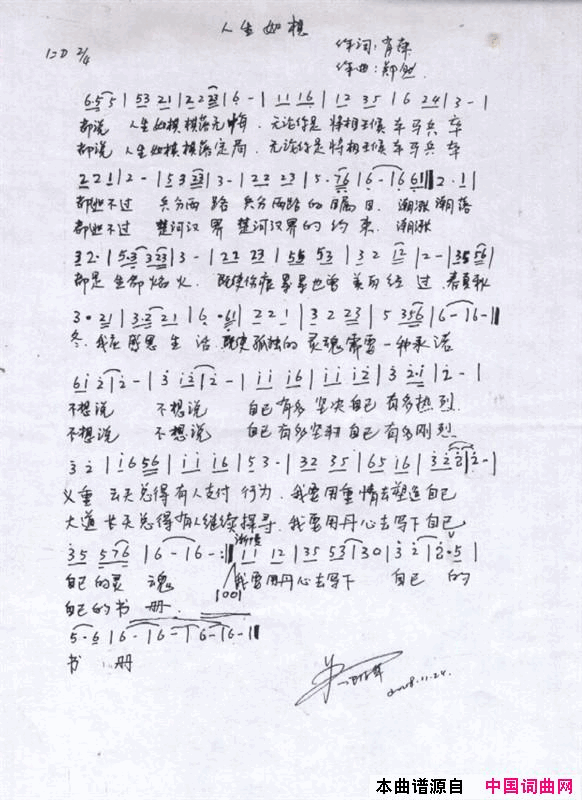 人生如棋
1=D 2/4
作词:肖萍
作曲:郑
6 5 5 | 5 3 2 1 | 2 2 2 3 | 6 - | 1 1 1 6 | 1 2 3 5 | 6 2 4 | 3 - |
都说 人生如棋棋落无悔. 无论你是将相王候车马兵卒
都说 人生如棋棋落定局. 无论你是将相王候车马兵卒
2 2 1 | 2 - | 5 3 2 3 | 3 - | 2 2 2 3 | 5 ·
都逃不过 兵分两路 兵分两路的瞩目. 潮涨潮落
都逃不过 楚河汉界 楚河汉界的约束. 潮涨
3 2 · | 5 · 3 3 2 3 | 3 - | 2 2 2 3 | 5 5 5 3 | 3 2 1 2 | 2 - | 3 5 5 6 |
都是生都焰火. 既使伤痕累累也曾美丽经过. 春夏秋
3 · 2 1 | 3 · 2 2 1 | 6 · 6 1 | 2 2 1 | 3 2 2 3 | 5 3 5 6 | 6 - | 6 -
冬. 我在感恩生活. 既使孤独的灵魂需要一种承诺
6 1 2 | 2 - | 3 1 2 | 2 - | 1 1 1 6 | 1 1 1 1 | 3 2 · 1 | 2 - |
不想说 不想说 自己有多坚决自己有多热烈.
不想说 不想说 自己有多坚韧自己有多刚烈.
3 2 | 1 6 5 6 | 1 1 1 6 | 5 3 · | 3 2 3 5 | 6 5 1 6 | 3 2 2 | 2 - |
义重 云天总得有人支付行为. 我要用重情去塑造自己
大道长天总得有人继续探寻. 我要用丹心去写下自己
3 5 5 7 6 | 6 - | 6 - :‖ 1 1 1 2 | 3 5 5 3 | 3 0 | 3 2 | 2 · 5 |
自己的灵魂 我要用丹心去写下 自己的
自己的书册.
5 · 6 | 6 - | 6 - | 6 - | 6 - ‖
书 册
2008.11.24.
本曲谱源自 中国词曲网